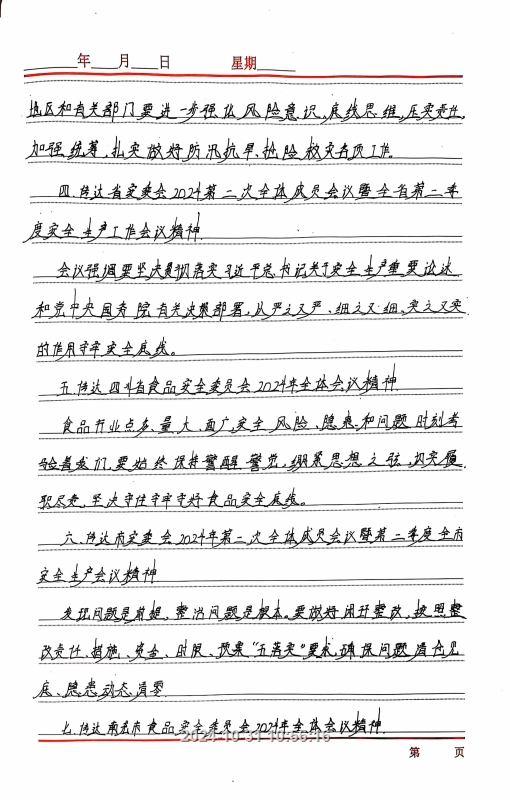 年 月 日 星期
地区和有关部门要进一步强化风险意识、底线思维,压实责任,
加强统筹,扎实做好防汛抗旱、抢险救灾各项工作。
四、传达省安委会2024第二次全体成员会议暨全省第二季
度安全生产工作会议精神
会议强调要坚决贯彻落实习近平总书记关于安全生产重要论述
和党中央国务院有关决策部署,从严之又严、细之又细、实之又实
的作用守牢安全底线。
五、传达四川省食品安全委员会2024年全体会议精神
食品行业点多、量大、面广,安全风险、隐患和问题时刻考
验着我们,要始终保持警醒警觉,绷紧思想之弦,切实履
职尽责,坚决守住守牢守好食品安全底线。
六、传达市安委会2024年第二次全体成员会议暨第二季度全市
安全生产会议精神
发现问题是前提,整治问题是根本。要做好闭环整改,按照整
改责任、措施、资金、时限、预案“五落实”要求,确保问题清仓见
底、隐患动态清零
七、传达南充市食品安全委员会2024年全体会议精神
2024-10-31 10:56:16
第 页